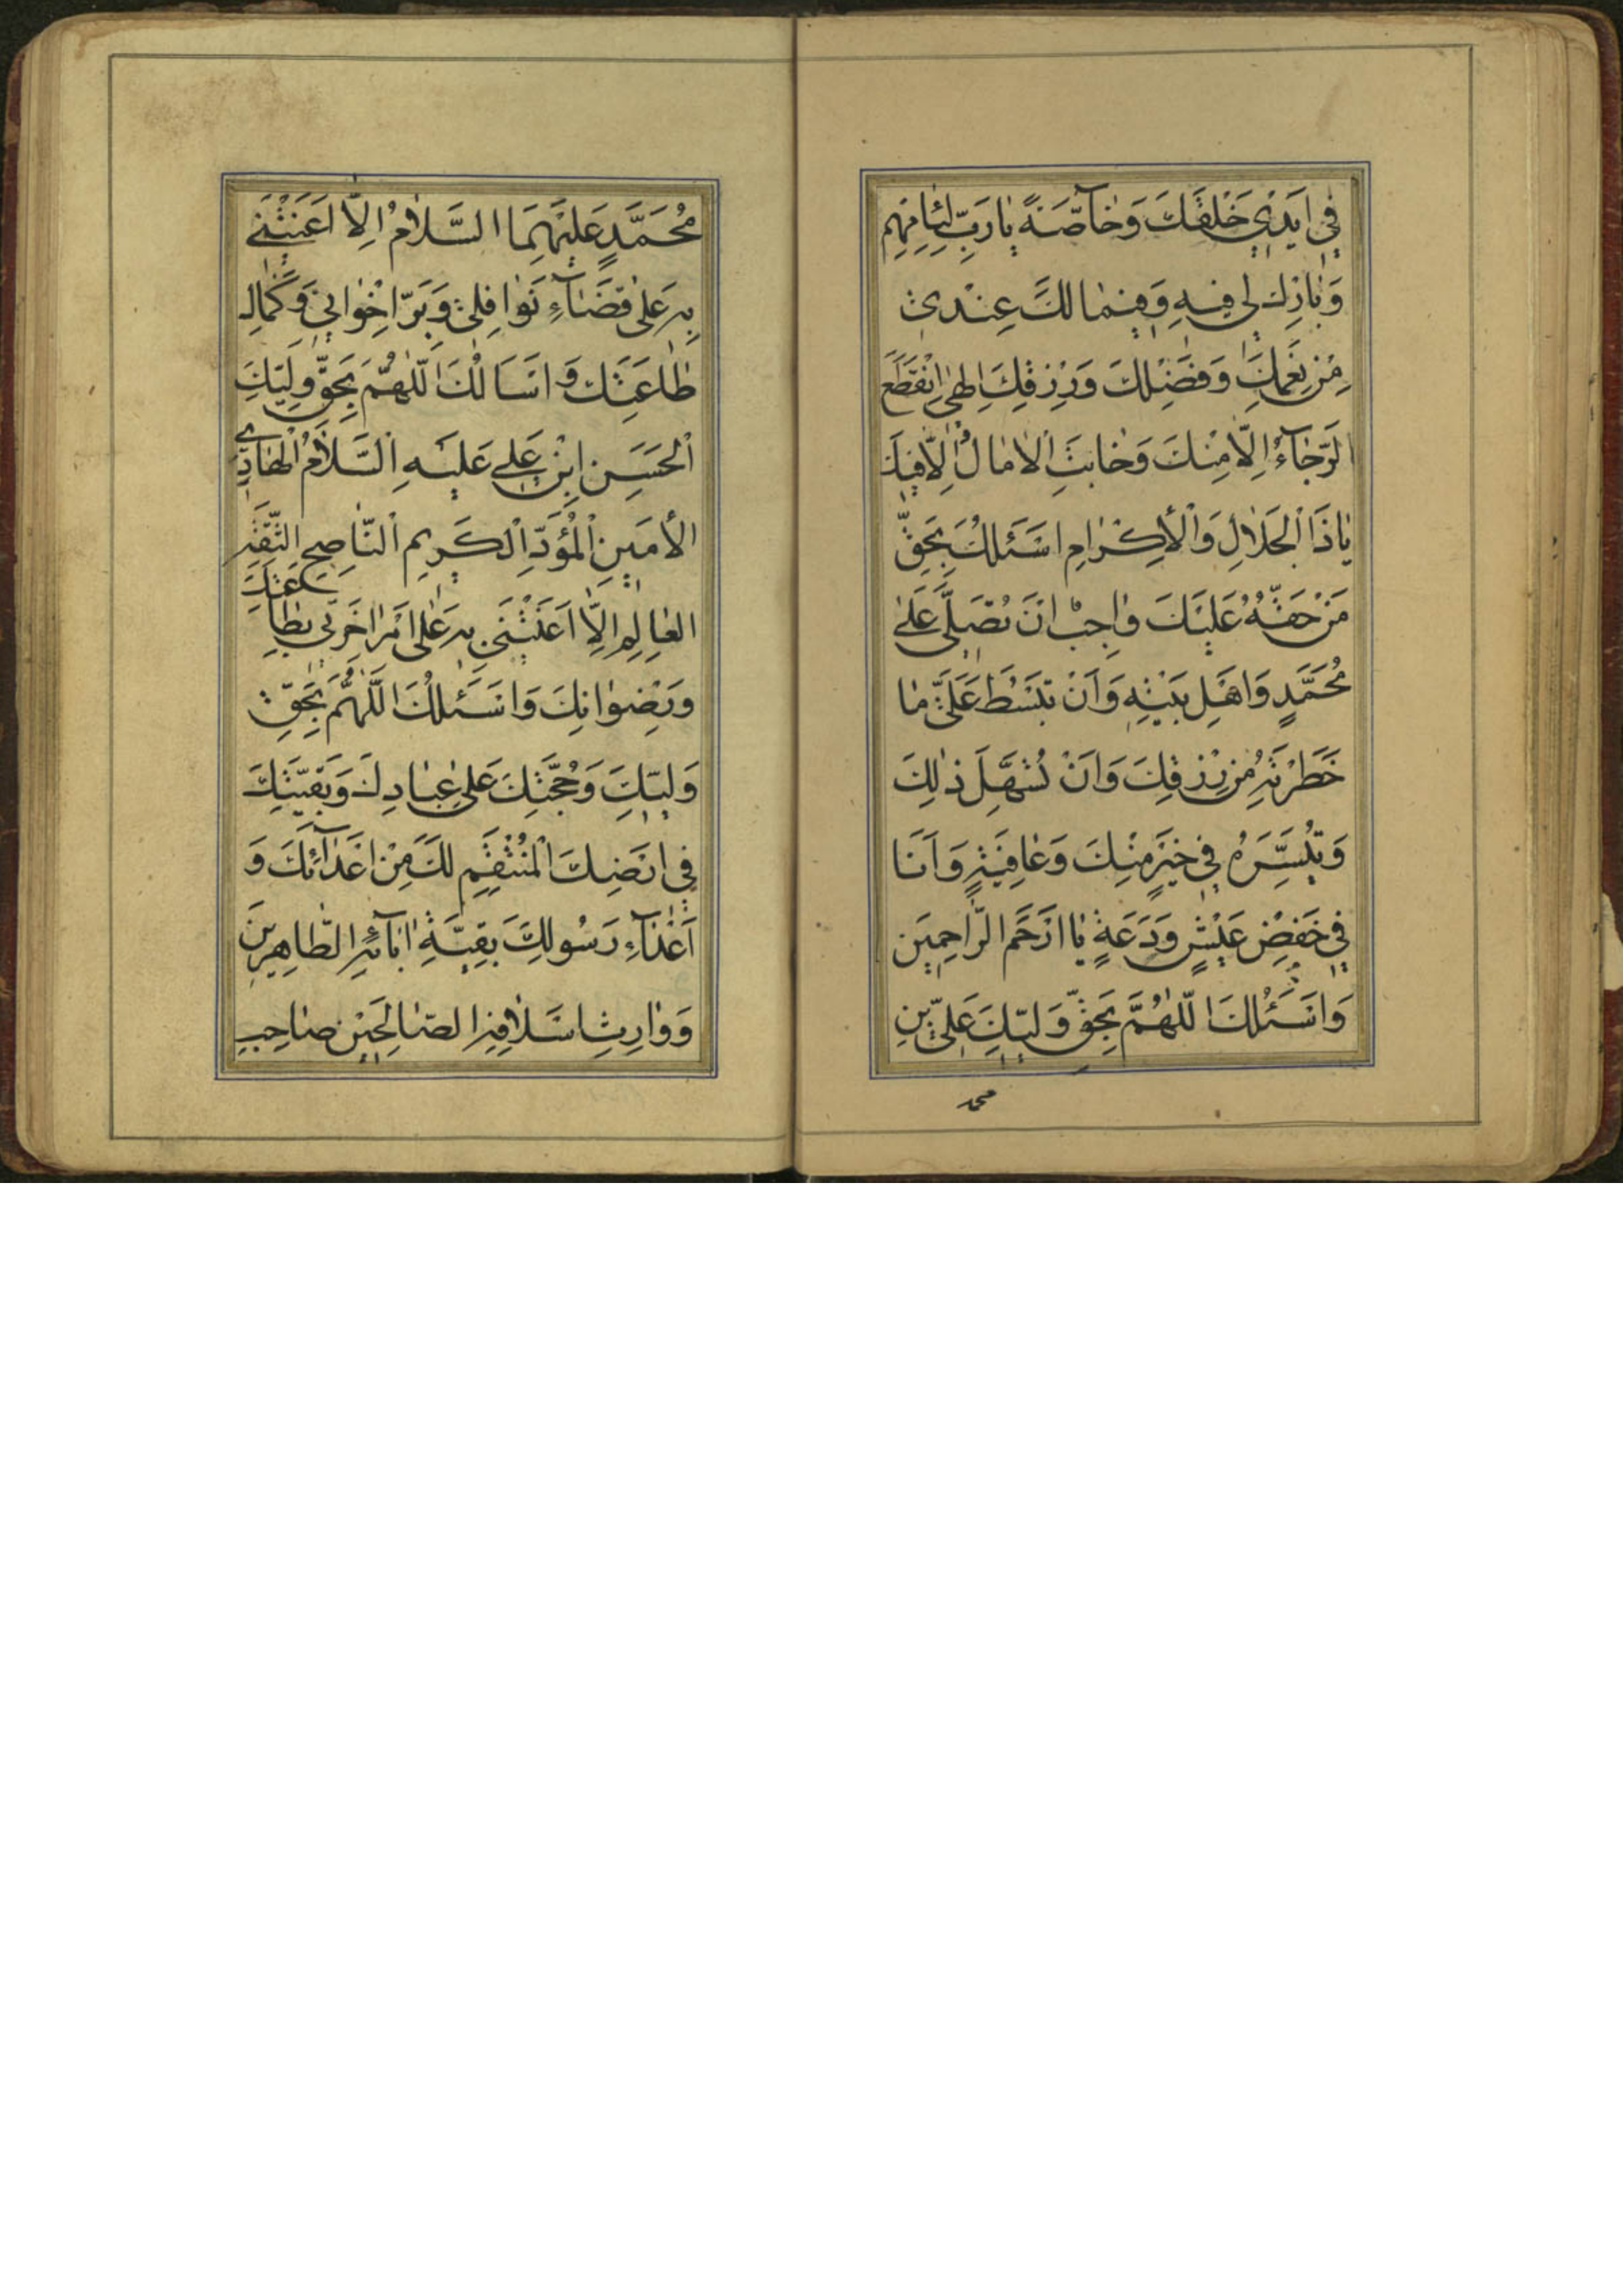 فِي اَيْدِي خَلْقِكَ وَخٰاصَّةً يٰا رَبِّ لِئٰامِهِمْ
وَبٰارِكْ لِي فِيهِ وَفِيمٰا لَكَ عِنْدِي
مِنْ نِعَمِكَ وَفَضْلِكَ وَرِزْقِكَ اِلٰهِي اِنْقَطَعَ
الرَّجٰآءُ اِلّٰا مِنْكَ وَخٰابَتِ الْاٰمٰالُ اِلّٰا فِيكَ
يٰا ذَا الْجَلٰالِ وَالْاِكْرٰامِ اَسْئَلُكَ بِحَقِّ
مَنْ حَقُّهُ عَلَيْكَ وٰاجِبٌ اَنْ تُصَلِّيَ عَلٰى
مُحَمَّدٍ وَاَهْلِ بَيْتِهِ وَاَنْ تَبْسُطَ عَلَيَّ مٰا
خَطَرْتَهُ مِنْ رِزْقِكَ وَاَنْ تُسَهِّلَ ذٰلِكَ
وَتُيَسِّرَهُ فِي خَيْرٍ مِنْكَ وَعٰافِيَةٍ وَاَنَا
فِي خَفْضِ عَيْشٍ وَدَعَةٍ يٰا اَرْحَمَ الرّٰاحِمِينَ
وَاَسْئَلُكَ اللّٰهُمَّ بِحَقِّ وَلِيِّكَ عَلِيِّ بْنِ
محمد
مُحَمَّدٍ عَلَيْهِمَا السَّلٰامُ اِلّٰا اَعَنْتَنِي
بِهِ عَلٰى قَضٰآءِ نَوٰافِلِي وَبِرِّ اِخْوٰانِي وَكَمٰالِ
طٰاعَتِكَ وَاَسَالُكَ اللّٰهُمَّ بِحَقِّ وَلِيِّكَ
الْحَسَنِ ابْنِ عَلِي عَلَيْهِ السَّلٰامُ الْهٰادِي
الْاَمِينِ الْمُؤَدِّ الْكَرِيمِ النّٰاصِحِ الثِّقَةِ
الْعٰالِمِ اِلّٰا اَعَنْتَنِي بِهِ عَلٰى اَمْرِ اٰخِرَتِي بِطٰاعَتِكَ
وَرِضْوٰانِكَ وَاَسْئَلُكَ اللّٰهُمَّ بِحَقِّ
وَلِيِّكَ وَحُجَّتِكَ عَلٰى عِبٰادِكَ وَبَقِيَّتِكَ
فِي اَرْضِكَ الْمُنْتَقِمِ لَكَ مِنْ اَعْدٰآئِكَ وَ
اَعْدٰآءِ رَسُولِكَ بَقِيَّةِ اٰبٰآئِهِ الطّٰاهِرِينَ
وَوٰارِثِ اَسْلٰافِهِ الصّٰالِحِينَ صٰاحِبِ